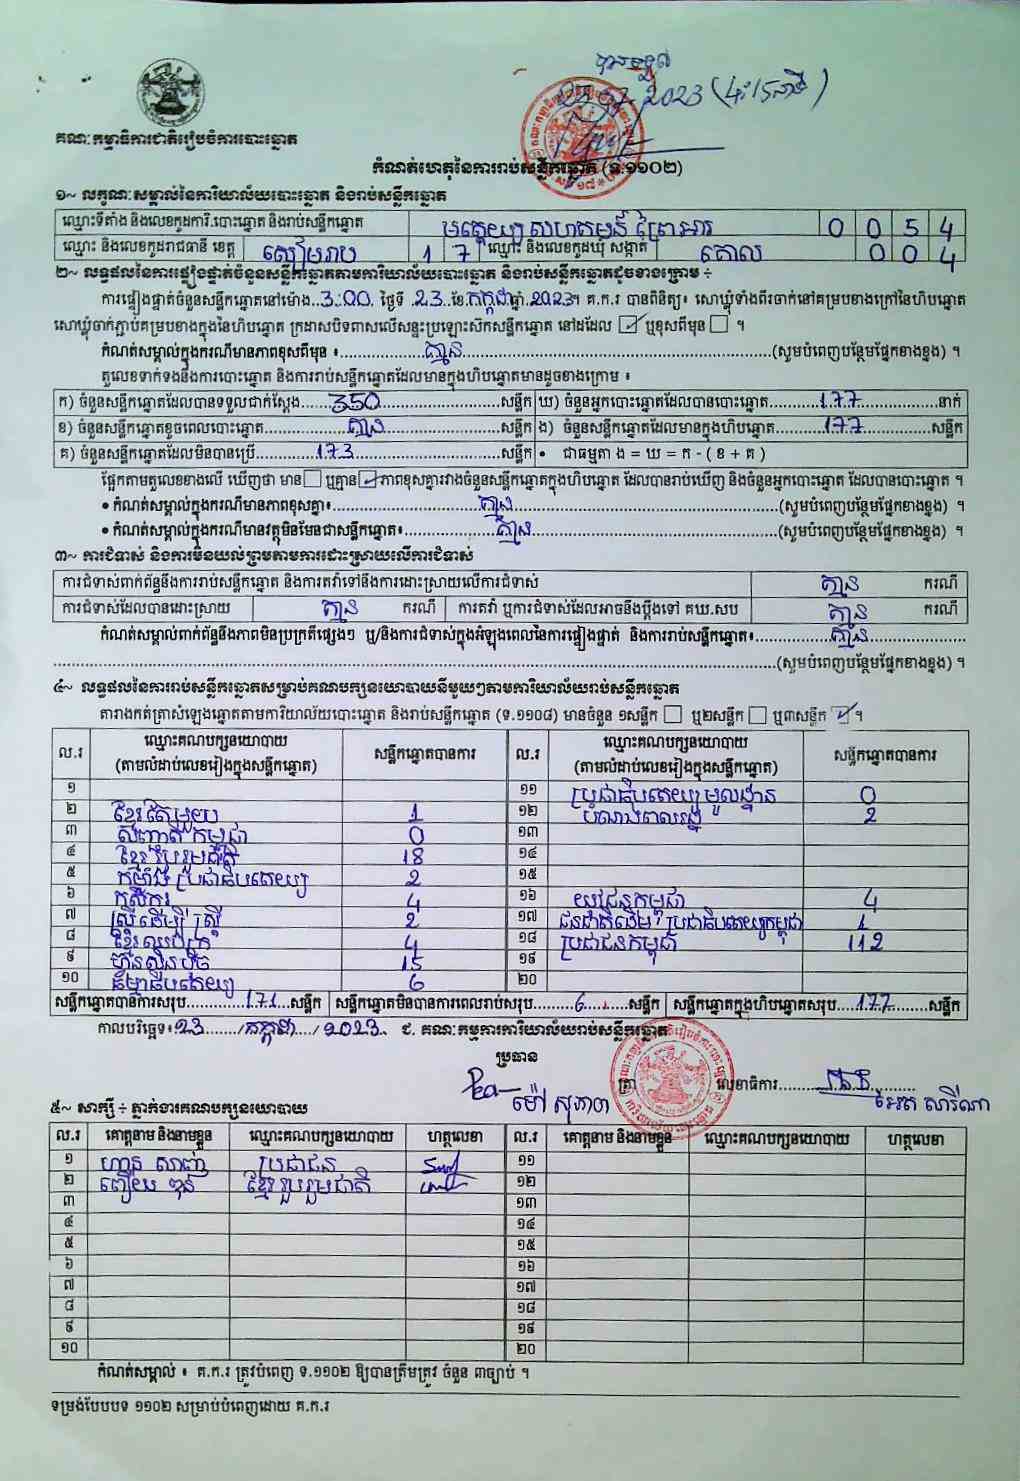 បានទទួល
23.07.2023 (4:15នាទី)
គណៈកម្មាធិការជាតិរៀបចំការបោះឆ្នោត
កំណត់ហេតុនៃការរាប់សន្លឹកឆ្នោត (ទ.១១០២)
១~ លក្ខណៈសម្គាល់នៃការិយាល័យបោះឆ្នោត និងរាប់សន្លឹកឆ្នោត
ឈ្មោះទីតាំង និងលេខកូដការិ.បោះឆ្នោត និងរាប់សន្លឹកឆ្នោត មត្តេយ្យ សហគមន៍ ព្រៃអារ 0 0 5 4
ឈ្មោះ និងលេខកូដរាជធានី ខេត្ត សៀមរាប 1 7 ឈ្មោះ និងលេខកូដឃុំ សង្កាត់ គោល 0 0 4
២~ លទ្ធផលនៃការផ្ទៀងផ្ទាត់ចំនួនសន្លឹកឆ្នោតតាមការិយាល័យបោះឆ្នោត និងរាប់សន្លឹកឆ្នោតដូចខាងក្រោម ÷
ការផ្ទៀងផ្ទាត់ចំនួនសន្លឹកឆ្នោតនៅម៉ោង..3:00. ថ្ងៃទី .23..ខែ.កក្កដា.ឆ្នាំ.2023.។ គ.ក.រ បានពិនិត្យ៖ សោឃ្លុំទាំងពីរចាក់នៅគម្របខាងក្រៅនៃហិបឆ្នោត
សោឃ្លុំចាក់ភ្ជាប់គម្របខាងក្នុងនៃហិបឆ្នោត ក្រដាសបិទពាសលើសន្ទះប្រឡោះស៊ីកសន្លឹកឆ្នោត នៅដដែល ☑ ឬខុសពីមុន ☐ ។
កំណត់សម្គាល់ក្នុងករណីមានភាពខុសពីមុន ៖ គ្មាន (សូមបំពេញបន្ថែមផ្នែកខាងខ្នង) ។
តួលេខទាក់ទងនឹងការបោះឆ្នោត និងការរាប់សន្លឹកឆ្នោតដែលមានក្នុងហិបឆ្នោតមានដូចខាងក្រោម ៖
ក) ចំនួនសន្លឹកឆ្នោតដែលបានទទួលជាក់ស្តែង 350 សន្លឹក ឃ) ចំនួនអ្នកបោះឆ្នោតដែលបានបោះឆ្នោត 177 នាក់
ខ) ចំនួនសន្លឹកឆ្នោតខូចពេលបោះឆ្នោត គ្មាន សន្លឹក ង) ចំនួនសន្លឹកឆ្នោតដែលមានក្នុងហិបឆ្នោត 177 សន្លឹក
គ) ចំនួនសន្លឹកឆ្នោតដែលមិនបានប្រើ 173 សន្លឹក • ជាធម្មតា ង = ឃ = ក - ( ខ + គ )
ផ្អែកតាមតួលេខខាងលើ ឃើញថា មាន ☐ ឬគ្មាន ☑ ភាពខុសគ្នារវាងចំនួនសន្លឹកឆ្នោតក្នុងហិបឆ្នោត ដែលបានរាប់ឃើញ និងចំនួនអ្នកបោះឆ្នោត ដែលបានបោះឆ្នោត ។
• កំណត់សម្គាល់ក្នុងករណីមានភាពខុសគ្នា៖ គ្មាន (សូមបំពេញបន្ថែមផ្នែកខាងខ្នង) ។
• កំណត់សម្គាល់ក្នុងករណីមានវត្ថុមិនមែនជាសន្លឹកឆ្នោត៖ គ្មាន (សូមបំពេញបន្ថែមផ្នែកខាងខ្នង) ។
៣~ ការជំទាស់ និងការមិនយល់ព្រមតាមការដោះស្រាយលើការជំទាស់
ការជំទាស់ពាក់ព័ន្ធនឹងការរាប់សន្លឹកឆ្នោត និងការតវ៉ាទៅនឹងការដោះស្រាយលើការជំទាស់ គ្មាន ករណី
ការជំទាស់ដែលបានដោះស្រាយ គ្មាន ករណី ការតវ៉ា ឬការជំទាស់ដែលអាចនឹងប្តឹងទៅ គឃ.សប គ្មាន ករណី
កំណត់សម្គាល់ពាក់ព័ន្ធនឹងភាពមិនប្រក្រតីផ្សេងៗ ឬ/និងការជំទាស់ក្នុងអំឡុងពេលនៃការផ្ទៀងផ្ទាត់ និងការរាប់សន្លឹកឆ្នោត៖ គ្មាន
(សូមបំពេញបន្ថែមផ្នែកខាងខ្នង) ។
៤~ លទ្ធផលនៃការរាប់សន្លឹកឆ្នោតសម្រាប់គណបក្សនយោបាយនីមួយៗតាមការិយាល័យរាប់សន្លឹកឆ្នោត
តារាងកត់ត្រាសំឡេងឆ្នោតតាមការិយាល័យបោះឆ្នោត និងរាប់សន្លឹកឆ្នោត (ទ.១១០៨) មានចំនួន ១សន្លឹក ☐ ឬ២សន្លឹក ☐ ឬ៣សន្លឹក ☑ ។
ល.រ ឈ្មោះគណបក្សនយោបាយ (តាមលំដាប់លេខរៀងក្នុងសន្លឹកឆ្នោត) សន្លឹកឆ្នោតបានការ ល.រ ឈ្មោះគណបក្សនយោបាយ (តាមលំដាប់លេខរៀងក្នុងសន្លឹកឆ្នោត) សន្លឹកឆ្នោតបានការ
១ ១១ ប្រជាធិបតេយ្យមូលដ្ឋាន 0
២ ខ្មែរតែមួយ 1 ១២ បំណងពលរដ្ឋ 2
៣ សញ្ជាតិកម្ពុជា 0 ១៣
៤ ខ្មែររួបរួមជាតិ 18 ១៤
៥ កម្លាំងប្រជាធិបតេយ្យ 2 ១៥
៦ កសិករ 4 ១៦ យុវជនកម្ពុជា 4
៧ ស្ត្រីដើម្បីស្ត្រី 2 ១៧ ជនជាតិដើមប្រជាធិបតេយ្យកម្ពុជា 1
៨ ខ្មែរឈប់ក្រ 4 ១៨ ប្រជាជនកម្ពុជា 112
៩ ហ៊្វុនស៊ិនប៉ិច 15 ១៩
១០ ធម្មាធិបតេយ្យ 6 ២០
សន្លឹកឆ្នោតបានការសរុប 171 សន្លឹក សន្លឹកឆ្នោតមិនបានការពេលរាប់សរុប 6 សន្លឹក សន្លឹកឆ្នោតក្នុងហិបឆ្នោតសរុប 177 សន្លឹក
កាលបរិច្ឆេទ៖ 23 / កក្កដា / 2023 ជ. គណៈកម្មការការិយាល័យរាប់សន្លឹកឆ្នោត
ប្រធាន
ត្រា លេខាធិការ
ម៉ៅ សុភាព
៥~ សាក្សី ÷ ភ្នាក់ងារគណបក្សនយោបាយ
ល.រ គោត្តនាម និងនាមខ្លួន ឈ្មោះគណបក្សនយោបាយ ហត្ថលេខា ល.រ គោត្តនាម និងនាមខ្លួន ឈ្មោះគណបក្សនយោបាយ ហត្ថលេខា
១ ប្រជាជន ១១
២ ខ្មែររួបរួមជាតិ ១២
៣ ១៣
៤ ១៤
៥ ១៥
៦ ១៦
៧ ១៧
៨ ១៨
៩ ១៩
១០ ២០
កំណត់សម្គាល់ ៖ គ.ក.រ ត្រូវបំពេញ ទ.១១០២ ឱ្យបានត្រឹមត្រូវ ចំនួន ៣ច្បាប់ ។
ទម្រង់បែបបទ ១១០២ សម្រាប់បំពេញដោយ គ.ក.រ